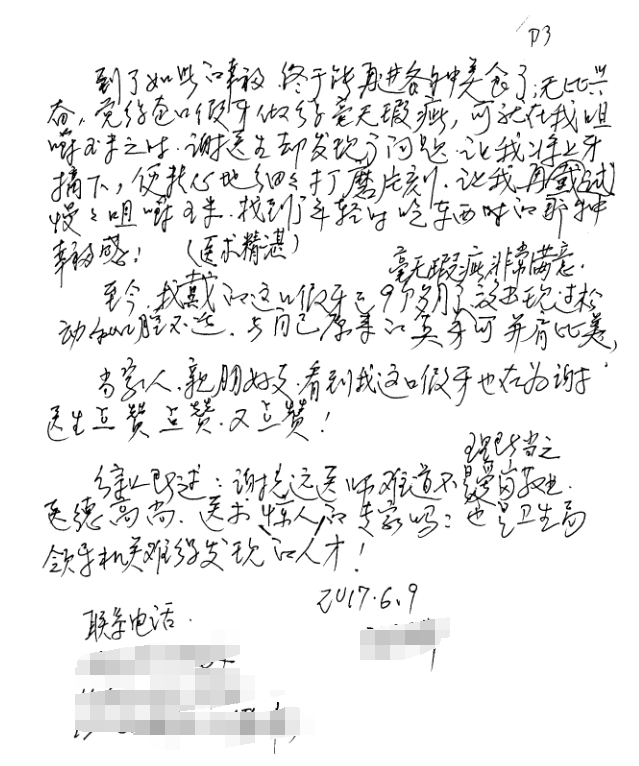 P3
到了如此的幸福,终于能再进各种美食了,无比兴
奋,觉得这口假牙做得毫无瑕疵,可就在我咀
嚼玉米之时,谢医生却发现了问题,让我将上牙
摘下,便耐心地细々打磨片刻,让我再戴试
慢々咀嚼玉米,找到了年轻时吃东西时的那种
幸福感!(医术精湛)
毫无瑕疵,非常满意.
至今,我戴的这口假牙已9个多月了,没出现过松
动和口腔不适,与自己原来的真牙可并肩比美,
当家人、亲朋好友,看到我这口假牙也在为谢
医生点赞点赞,又点赞!
理所当之
综上所述:谢 远医师难道不是爱岗敬业.
医德高尚、医术惊人的专家吗?也是卫生局
领导机关难得发现的人才!
2017.6.9
联系电话.